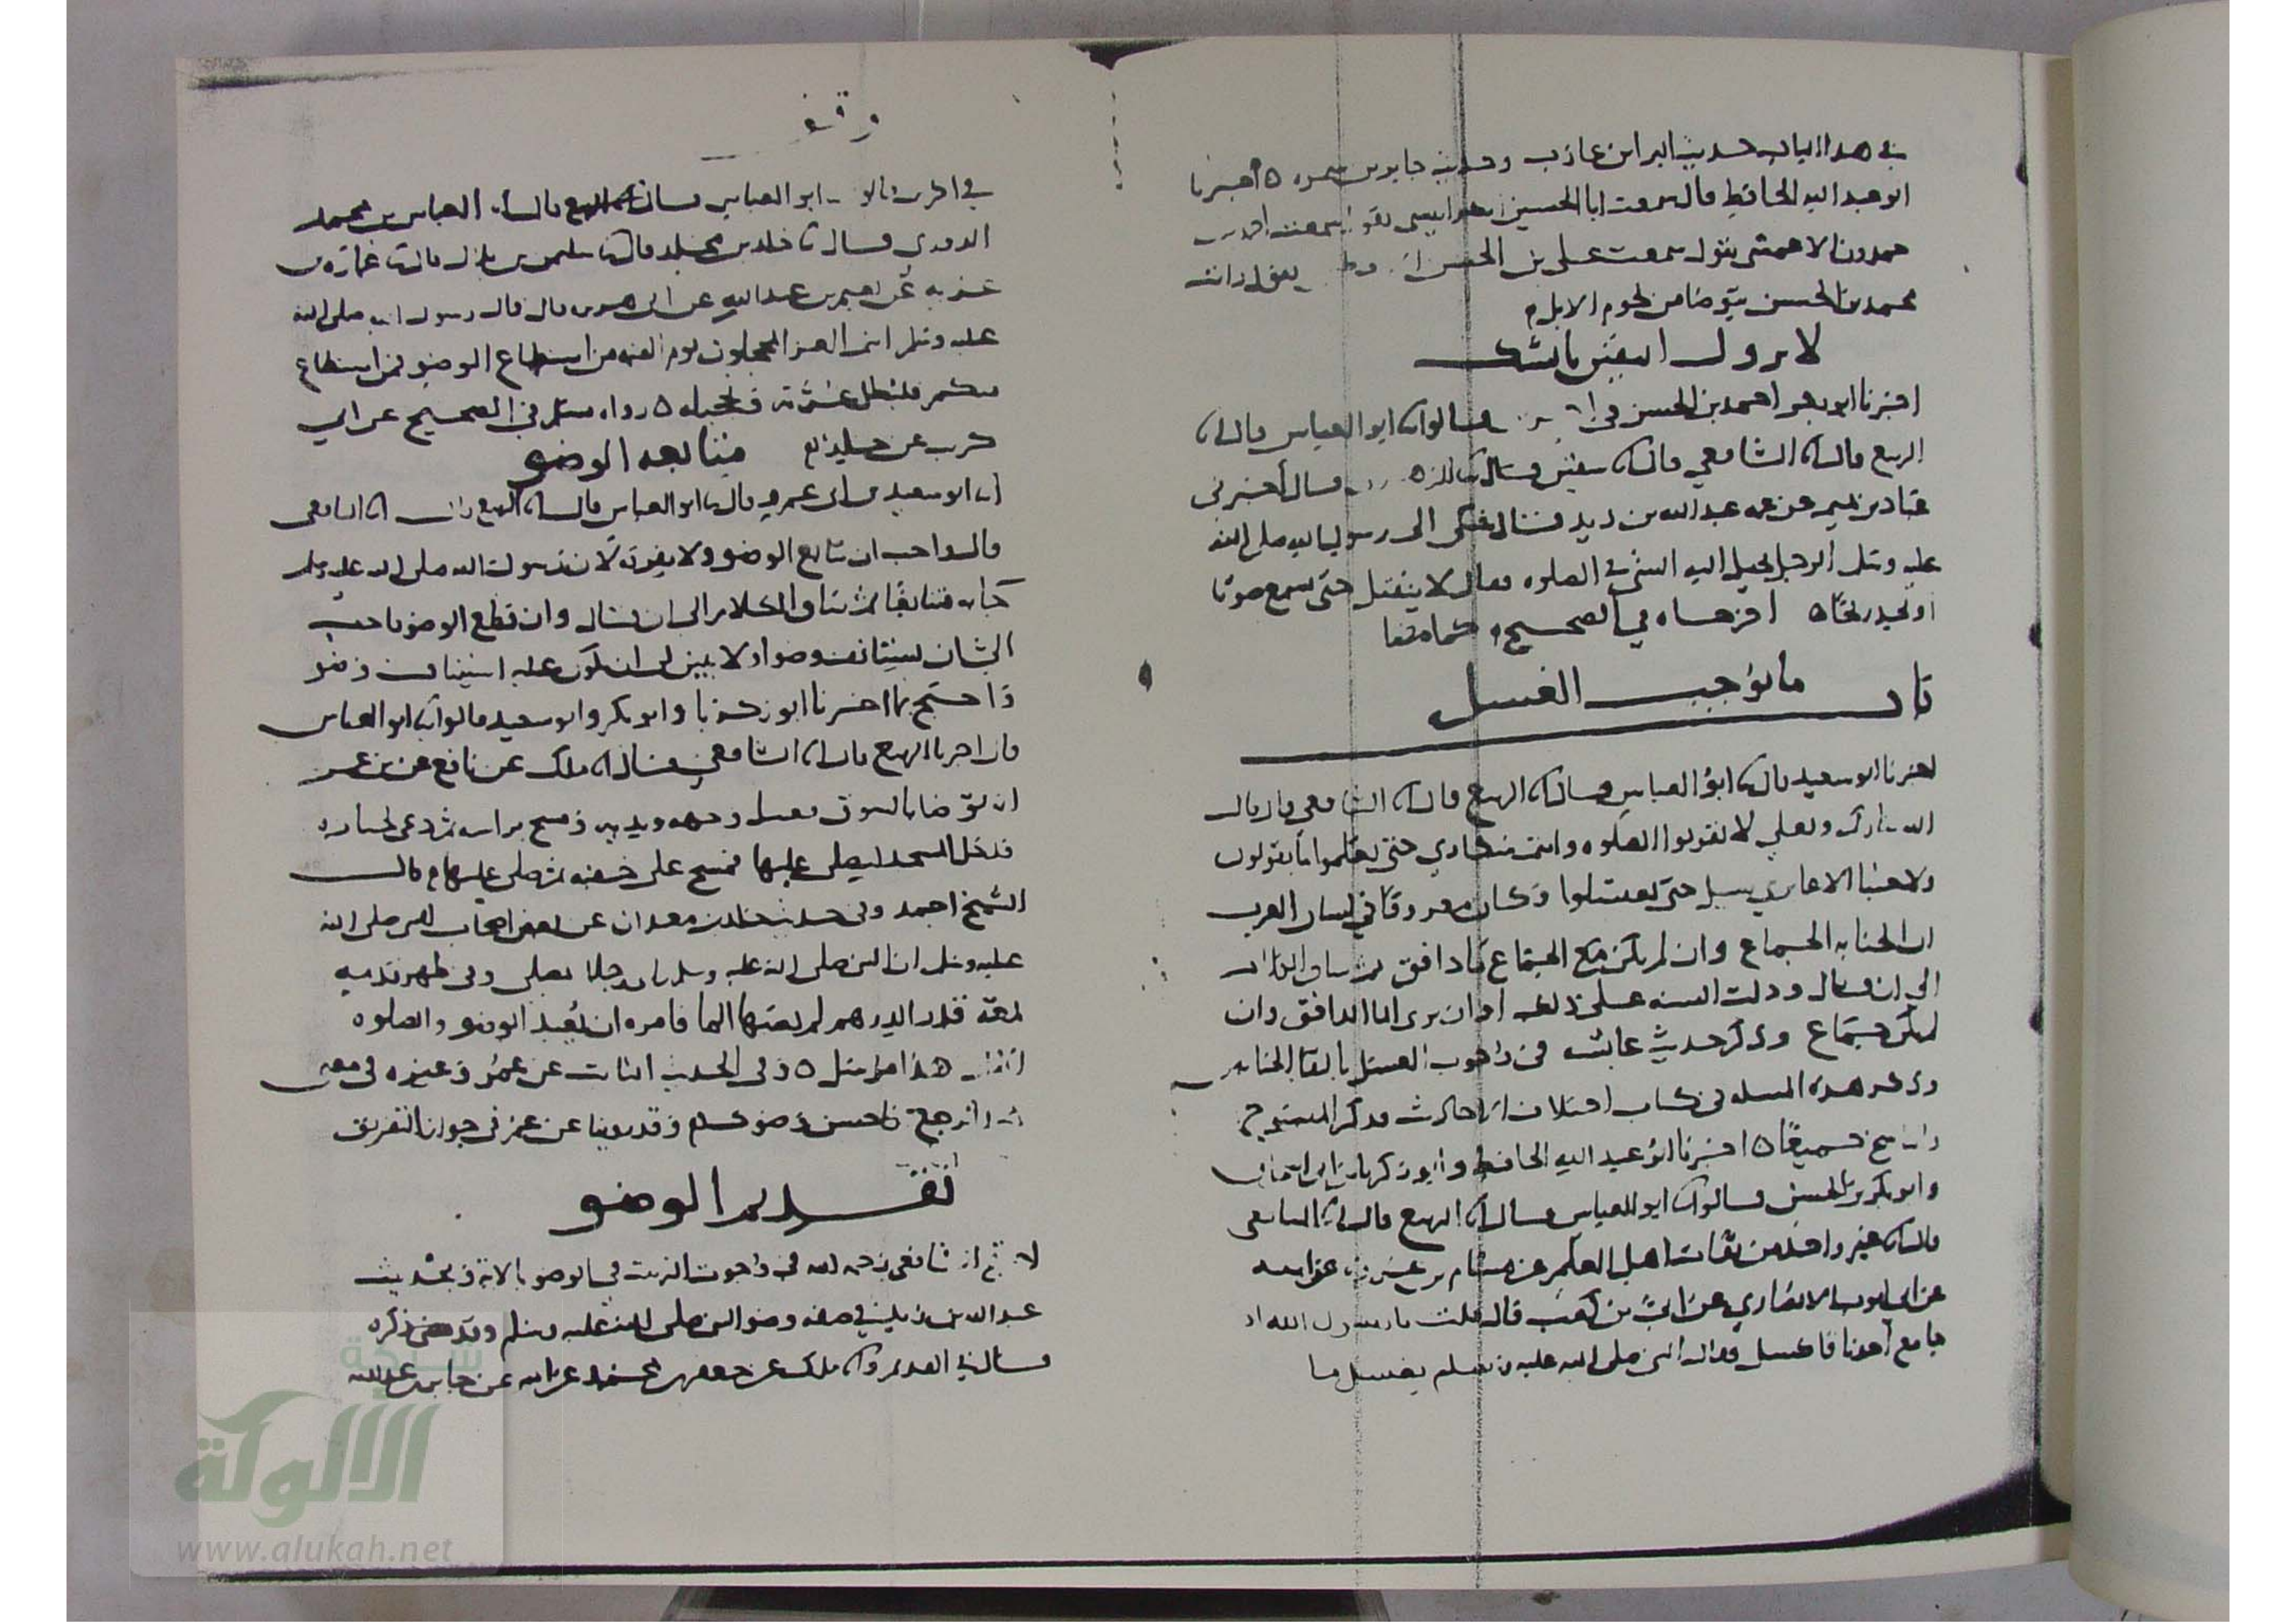 في هذا الباب حديث البرا بن عازب وحديث جابر بن سمره ه أخبرنا
ابو عبد الله الحافظ قال سمعت ابا الحسين يقول سمعت احمد بن
حمدون الاعمش يقول سمعت علي بن الحسن يقول رايت
محمد بن الحسن يتوضا من لحوم الابل
لا يزول اليقين بالشك
اخبرنا ابو بكر احمد بن الحسن في قالوا ابو العباس قال انا
الربيع قال انا الشافعي قال انا سفين قال انا الزهري قال أخبرني
عباد بن تميم عن عمه عبد الله بن زيد قال شكى الى رسول الله صلى الله
عليه وسلم الرجل يخيل اليه الشي في الصلوه فقال لا ينفتل حتى يسمع صوتا
او يجد ريحا ه اخرجاه في الصحيح كما مضا
باب ما يوجب الغسل
اخبرنا ابو سعيد قال انا ابو العباس قال انا الربيع قال انا الشافعي قال قال
الله تبارك وتعلى لا تقربوا الصلوه وانتم سكارى حتى تعلموا ما تقولون
ولا جنبا الا عابري سبيل حتى تغتسلوا وكان معروفا في لسان العرب
ان الجنابه الجماع وان لم يكن مع الجماع ما دافق ثم ساق الكلام
الى ان قال ودلت السنه على ذلك او ان يرى الما الدافق وان
لم يكن جماع وذكر حديث عائشه في وجوب الغسل بالتقا الختانين
وذكر هذه المسله في كتاب اختلاف الاحاديث فذكر المنسوخ
والناسخ جميعا ه اخبرنا ابو عبد الله الحافظ وابو زكريا بن ابي اسحاق
وابو بكر بن الحسن قالوا انا ابو العباس قال انا الربيع قال انا الشافعي
قال انا غير واحد من ثقات اهل العلم عن هشام بن عروه عن ابيه
عن ابي ايوب الانصاري عن ابي بن كعب قال قلت يا رسول الله اذا
جامع أحدنا فاكسل فقال النبي صلى الله عليه وسلم يغسل ما
وقف
في اخرين قالو ابو العباس قال انا العباس بن محمد
الدوري قال نا خلد بن مخلد قال نا سليمن بن بلال قال نا عمارة بن
غزيه عن نعيم بن عبد الله عن ابي هريره قال قال رسول الله صلى الله
عليه وسلم انتم الغر المحجلون يوم القيمه من اسباغ الوضو فمن استطاع
منكم فليطل غرته وتحجيله ه رواه مسلم في الصحيح عن ابي
كريب عن خلد
متابعه الوضو
انا ابو سعيد بن ابي عمرو قال نا ابو العباس قال انا الربيع قال انا الشافعي
قال واحب ان يتابع الوضو ولا يفرقه لان رسول الله صلى الله عليه وسلم
جا به متتابعا ثم ساق الكلام الى ان قال وان قطع الوضو فاحب
الي ان يستانف وضوا ولا يبين لي ان يكون عليه استيناف وضو
واحتج بما اخبرنا ابو زكريا وابو بكر وابو سعيد قالوا انا ابو العباس
قال اخبرنا الربيع قال انا الشافعي قال انا ملك عن نافع عن بن عمر
انه توضا بالسوق فغسل وجهه ويديه ومسح براسه ثم دعي لجنازه
فدخل المسجد ليصلي عليها فمسح على خفيه ثم صلى عليها قال
الشيخ احمد وفي حديث خلد بن معدان عن بعض اصحاب النبي صلى الله
عليه وسلم ان النبي صلى الله عليه وسلم راى رجلا يصلي وفي ظهر قدميه
لمعه قدر الدرهم لم يصبها الما فامره ان يعيد الوضو والصلوه
هذا مرسل ه وفي الحديث الثابت عن عمر وغيره في معناه
ارجع فاحسن وضوك وقد روينا عن عمر في جواز التفريق
تقديم الوضو
احتج الشافعي رحمه الله في وجوب الترتيب في الوضو بالايه وبحديث
عبد الله بن زيد في صفه وضو النبي صلى الله عليه وسلم وقد مضى ذكره
قال في القديم وانا ملك عن جعفر بن محمد عن ابيه عن جابر بن عبد الله
شبكة
الألوكة
www.alukah.net